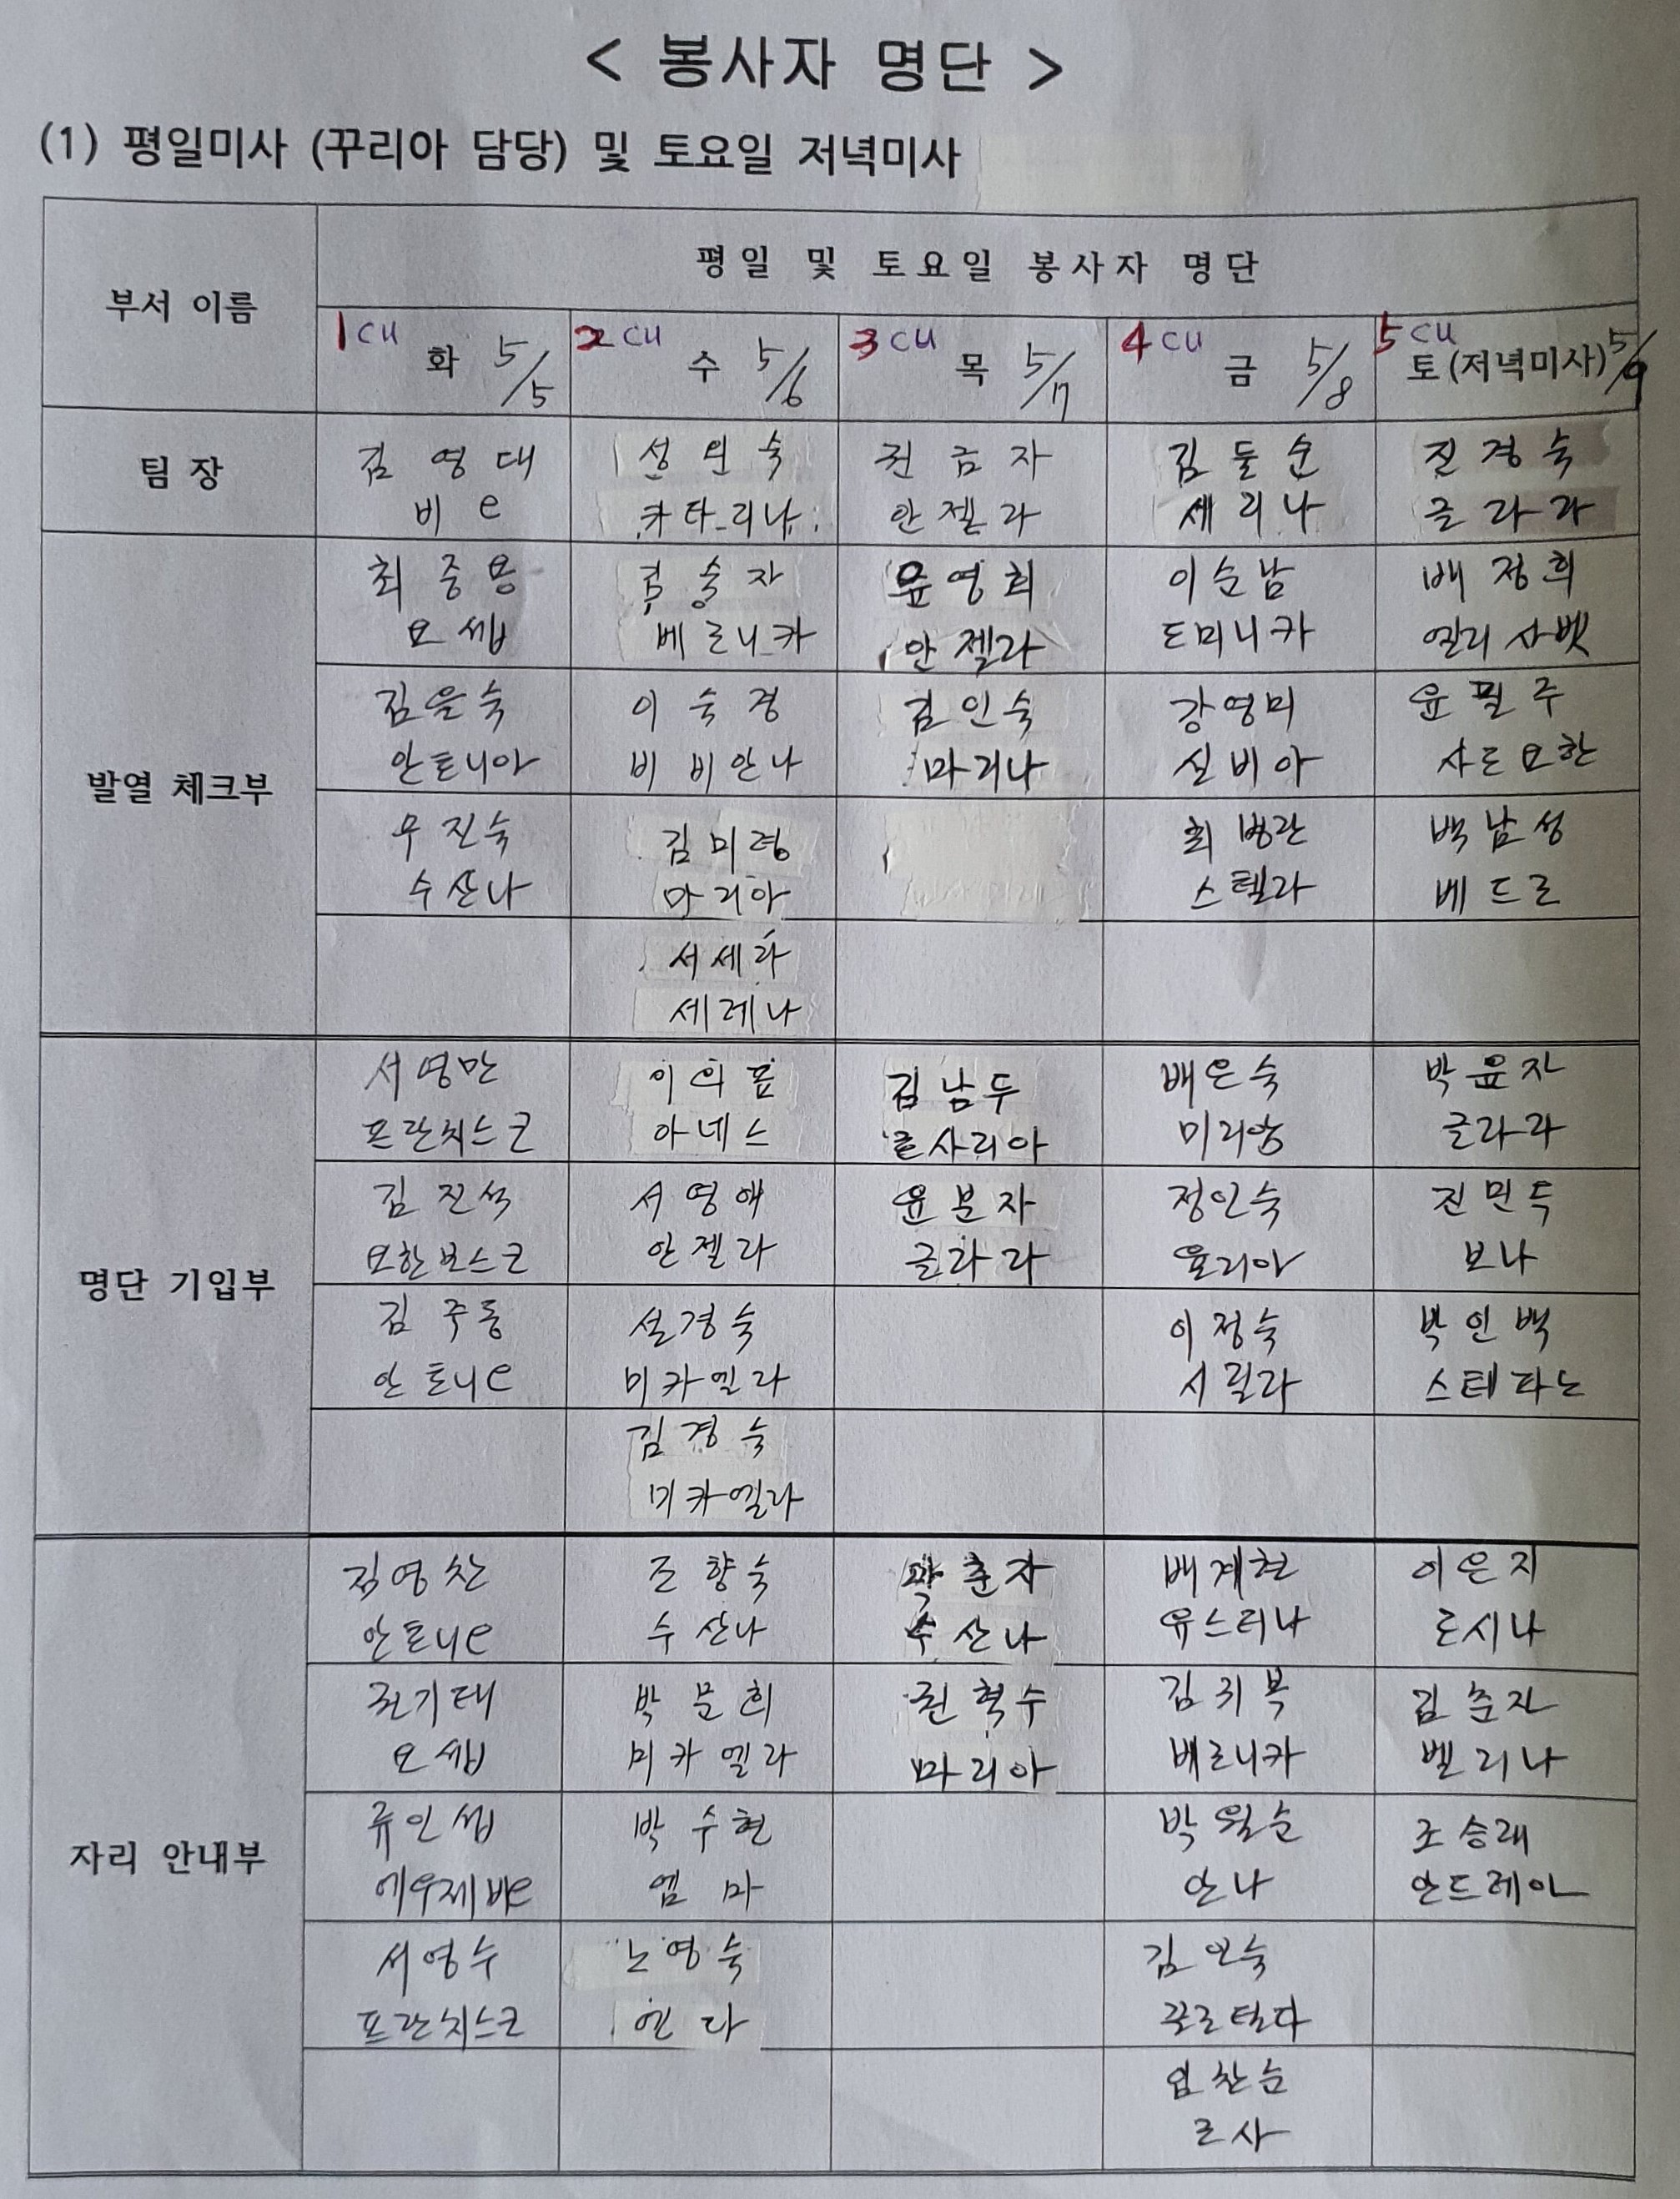 < 봉사자 명단 >
(1) 평일미사 (꾸리아 담당) 및 토요일 저녁미사
부서 이름
평일 및 토요일 봉사자 명단
1 CU 화 5/5
2 CU 수 5/6
3 CU 목 5/7
4 CU 금 5/8
5 CU 토(저녁미사) 5/9
팀장
김영대 비오
성인숙 카타리나
권금자 안젤라
김둘순 세리나
진경숙 글라라
발열 체크부
최중용 요셉
김술자 베로니카
윤영희 안젤라
이순남 도미니카
배정희 엘리사벳
김을숙 안토니아
이숙경 비비안나
김인숙 마리나
강영미 실비아
윤필주 사도요한
우진숙 수산나
김미령 마리아
최병란 스텔라
백남성 베드로
서세라 세레나
명단 기입부
서영만 프란치스코
이의표 아네스
김남두 로사리아
배은숙 미리암
박윤자 글라라
김진석 요한보스코
서영애 안젤라
윤분자 글라라
정인숙 율리아
진민두 보나
김주동 안토니오
설경숙 미카엘라
이정숙 시릴라
박인백 스테파노
김경숙 미카엘라
자리 안내부
김영찬 안토니오
조향숙 수산나
곽춘자 수산나
배계현 유스티나
이은지 로시나
권기태 요셉
박문희 미카엘라
권혁수 마리아
김귀복 베로니카
김춘자 벨리나
류인섭 에우제비오
박수현 엠마
박월순 안나
조승래 안드레아
서영수 프란치스코
노영숙 엔다
김인숙 끌로틸다
엄찬순 로사